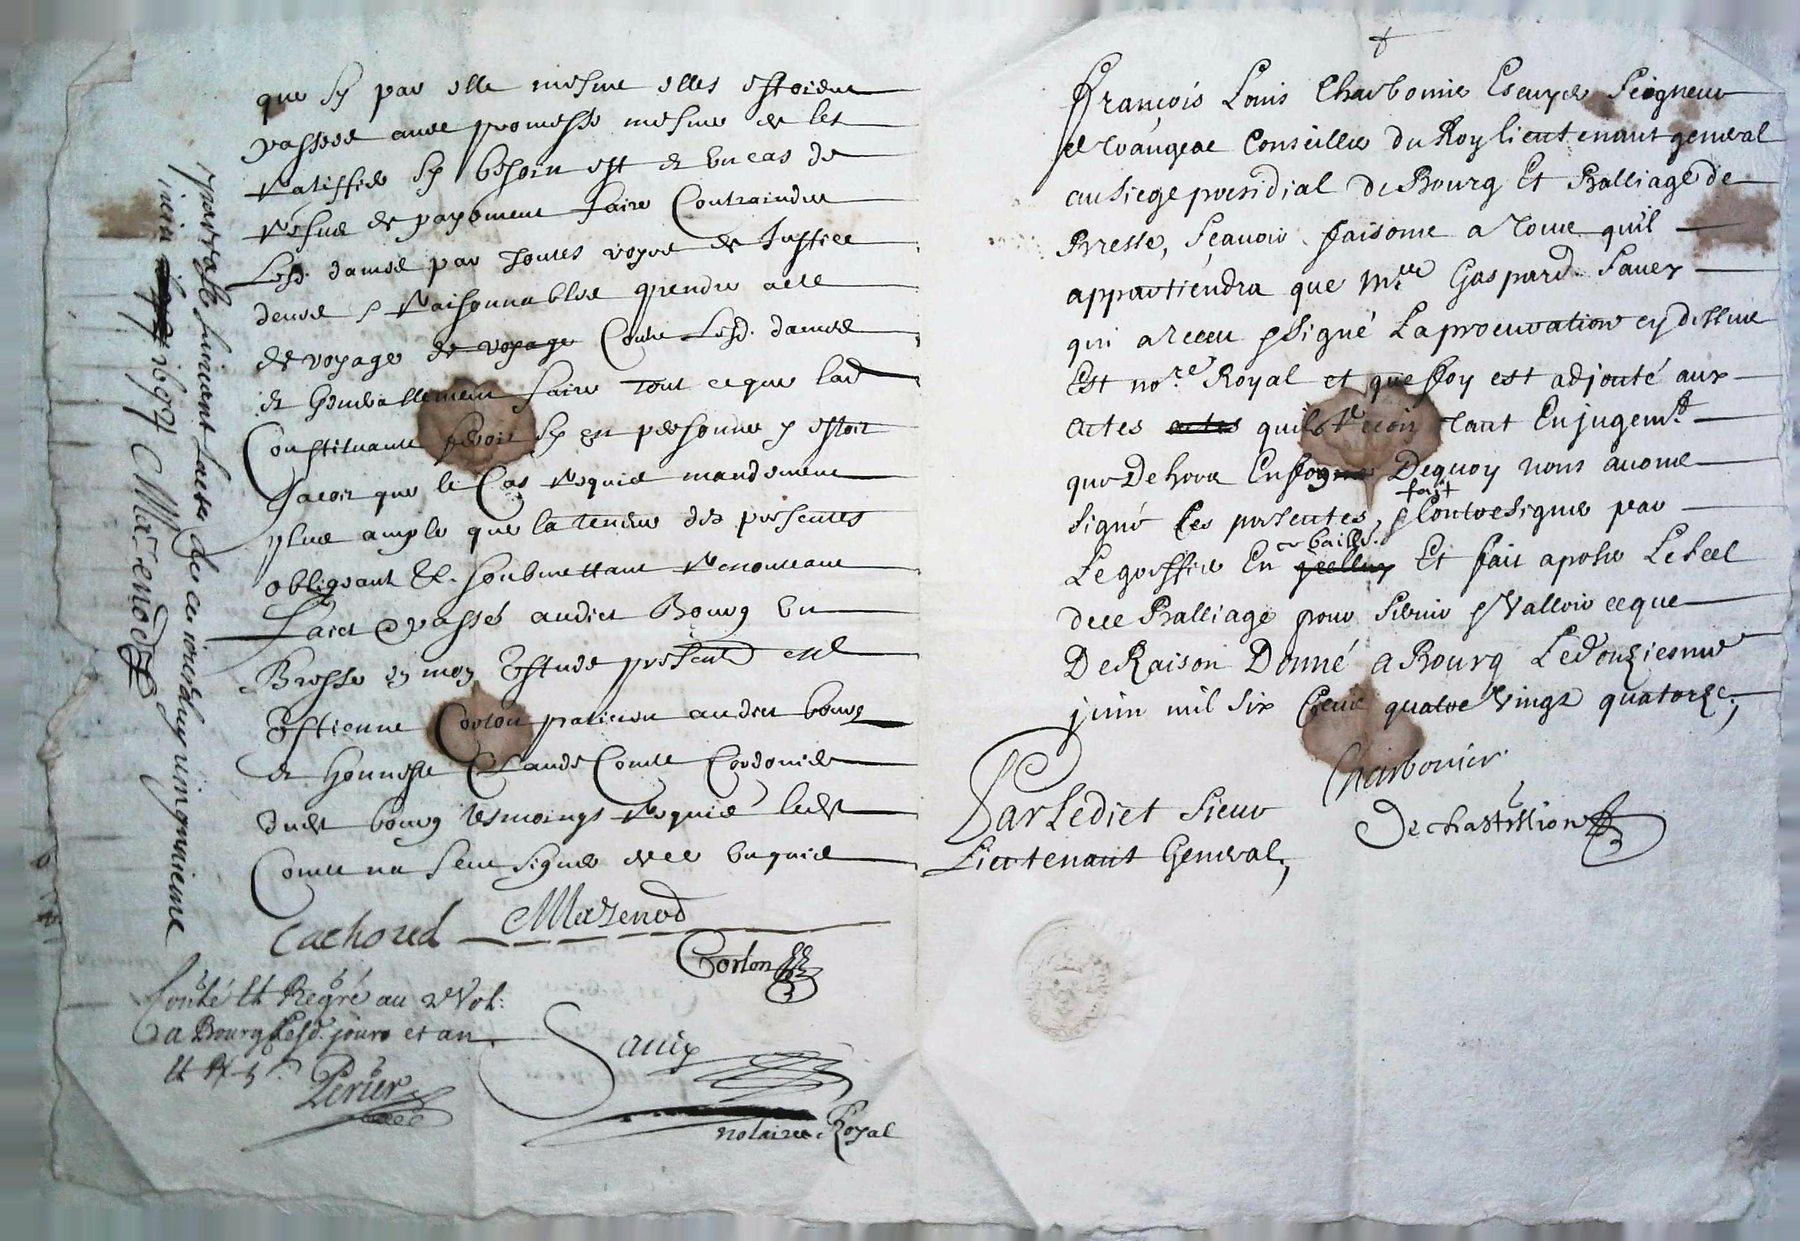 que sy par elle mesme elles estoient
passees avec promesse mesme de les
ratiffier sy besoin est et en cas de
refus de payement faire Contraindre
Lesd. dames par toutes voyes de Justice
deues et raisonnables prendre acte
de voyage de voyage Contre Lesd. dames
et Generallement faire tout ce que lad
Constituante feroit sy en personne y estoit
Jacoit que le Cas requit mandement
plus ample que la teneur des presentes
obligeant &c. soubmettant renonceant
Faict et passé audict Bourg en
Bresse en mon Estude presents
Estienne Corton praticien audict bourg
et honneste Claude Comte Cordonier
dudt bourg tesmoings requis ledt
Comte na sceu signer de ce enquis
Cachored Mazenod
Corton
Conlé et Regré au 2e Vol:
a Bourg Lesd. jours et an
Perier
Sauey
notaire Royal
juin 1697 Mazenod
François Louis Charbonnier Escuyer Seigneur
Conseiller du Roy lieutenant general
au siege presidial de Bourg Et Balliage de
Bresse, Sçavoir faisons a tous quil
appartiendra que Mre Gaspard Sauey
qui a receu et signé La procuration cy dessus
Est nore Royal et que foy est adjouté aux
actes actes quil reçoit tant En jugemt
que De hors En foy De quoy nous avons
signé Les presentes, fait et Contresigner par
Le greffier En ce baillge. Et fait aposer Le scel
dece Balliage pour servir et Valloir ce que
De Raison Donné a Bourg Le douziesme
juin mil six Cents quatre Vingt quatorze,
Charbonier
Par Ledict Sieur
Lieutenant General,
Dechastillion